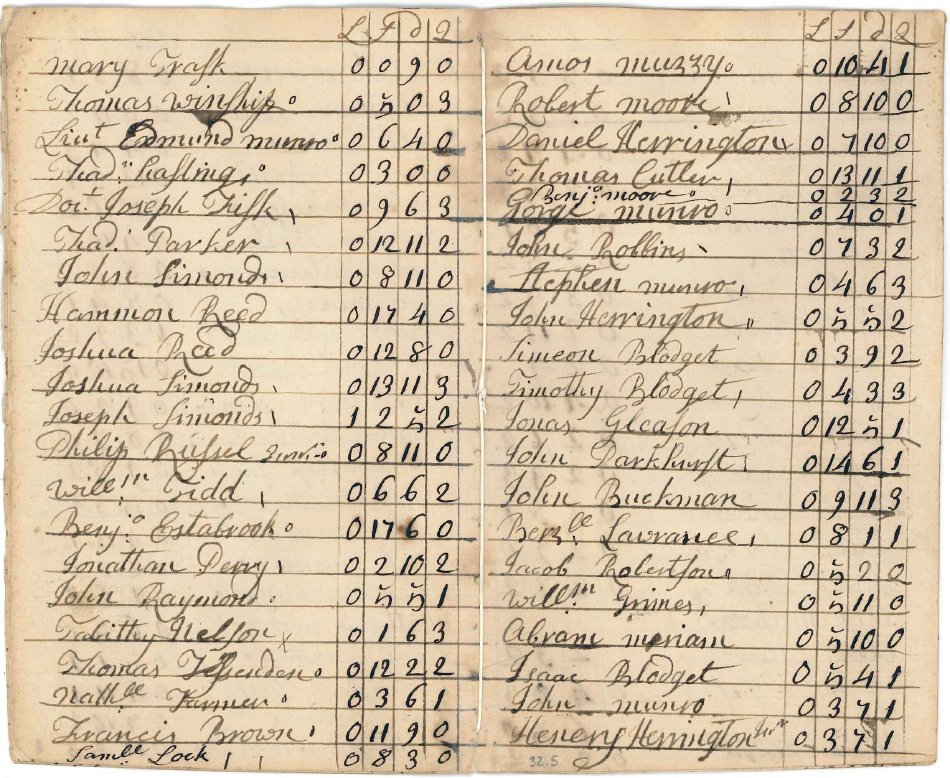 L f d Q
Mary Trask 0 0 9 0
Thomas Winship 0 5 0 3
Lieut Edmund munro 0 6 4 0
Thad:n hastings 0 3 0 0
Docr Joseph Fisk 0 9 6 3
Thad: Parker 0 12 11 2
John Simonds 0 8 11 0
Hammon Reed 0 17 4 0
Joshua Reed 0 12 8 0
Joshua Simonds 0 13 11 3
Joseph Simonds 1 2 5 2
Philip Russel 0 8 11 0
Will:m Tidd 0 6 6 2
Benj:o Estabrook 0 17 6 0
Jonathan Perry 0 2 10 2
John Raymond 0 5 5 1
Tabithy Nelson x 0 1 6 3
Thomas Fessenden 0 12 2 2
nath:ll Farmer 0 3 6 1
Francis Brown 0 11 9 0
Sam:ll Lock 0 8 3 0
L f d Q
Amos muzzy 0 10 4 1
Robert moore 0 8 10 0
Daniel Herrington 0 7 10 0
Thomas Cutler 0 13 11 1
Benj:o moore 0 2 3 2
Gorge munro 0 4 0 1
John Robbins 0 7 3 2
Stephen munro 0 4 6 3
John Herrington 0 5 5 2
Simeon Blodget 0 3 9 2
Timothy Blodget 0 4 3 3
Jonas Gleason 0 12 5 1
John Parkhurst 0 14 6 1
John Buckman 0 9 11 3
Benj:ll Lawrance 0 8 1 1
Jacob Robertson 0 5 2 0
Will:m Grimes 0 5 11 0
Abram meriam 0 5 10 0
Isaac Blodget 0 5 4 1
John munro 0 3 7 1
Henery Herrington Jur 0 3 7 1
32.5